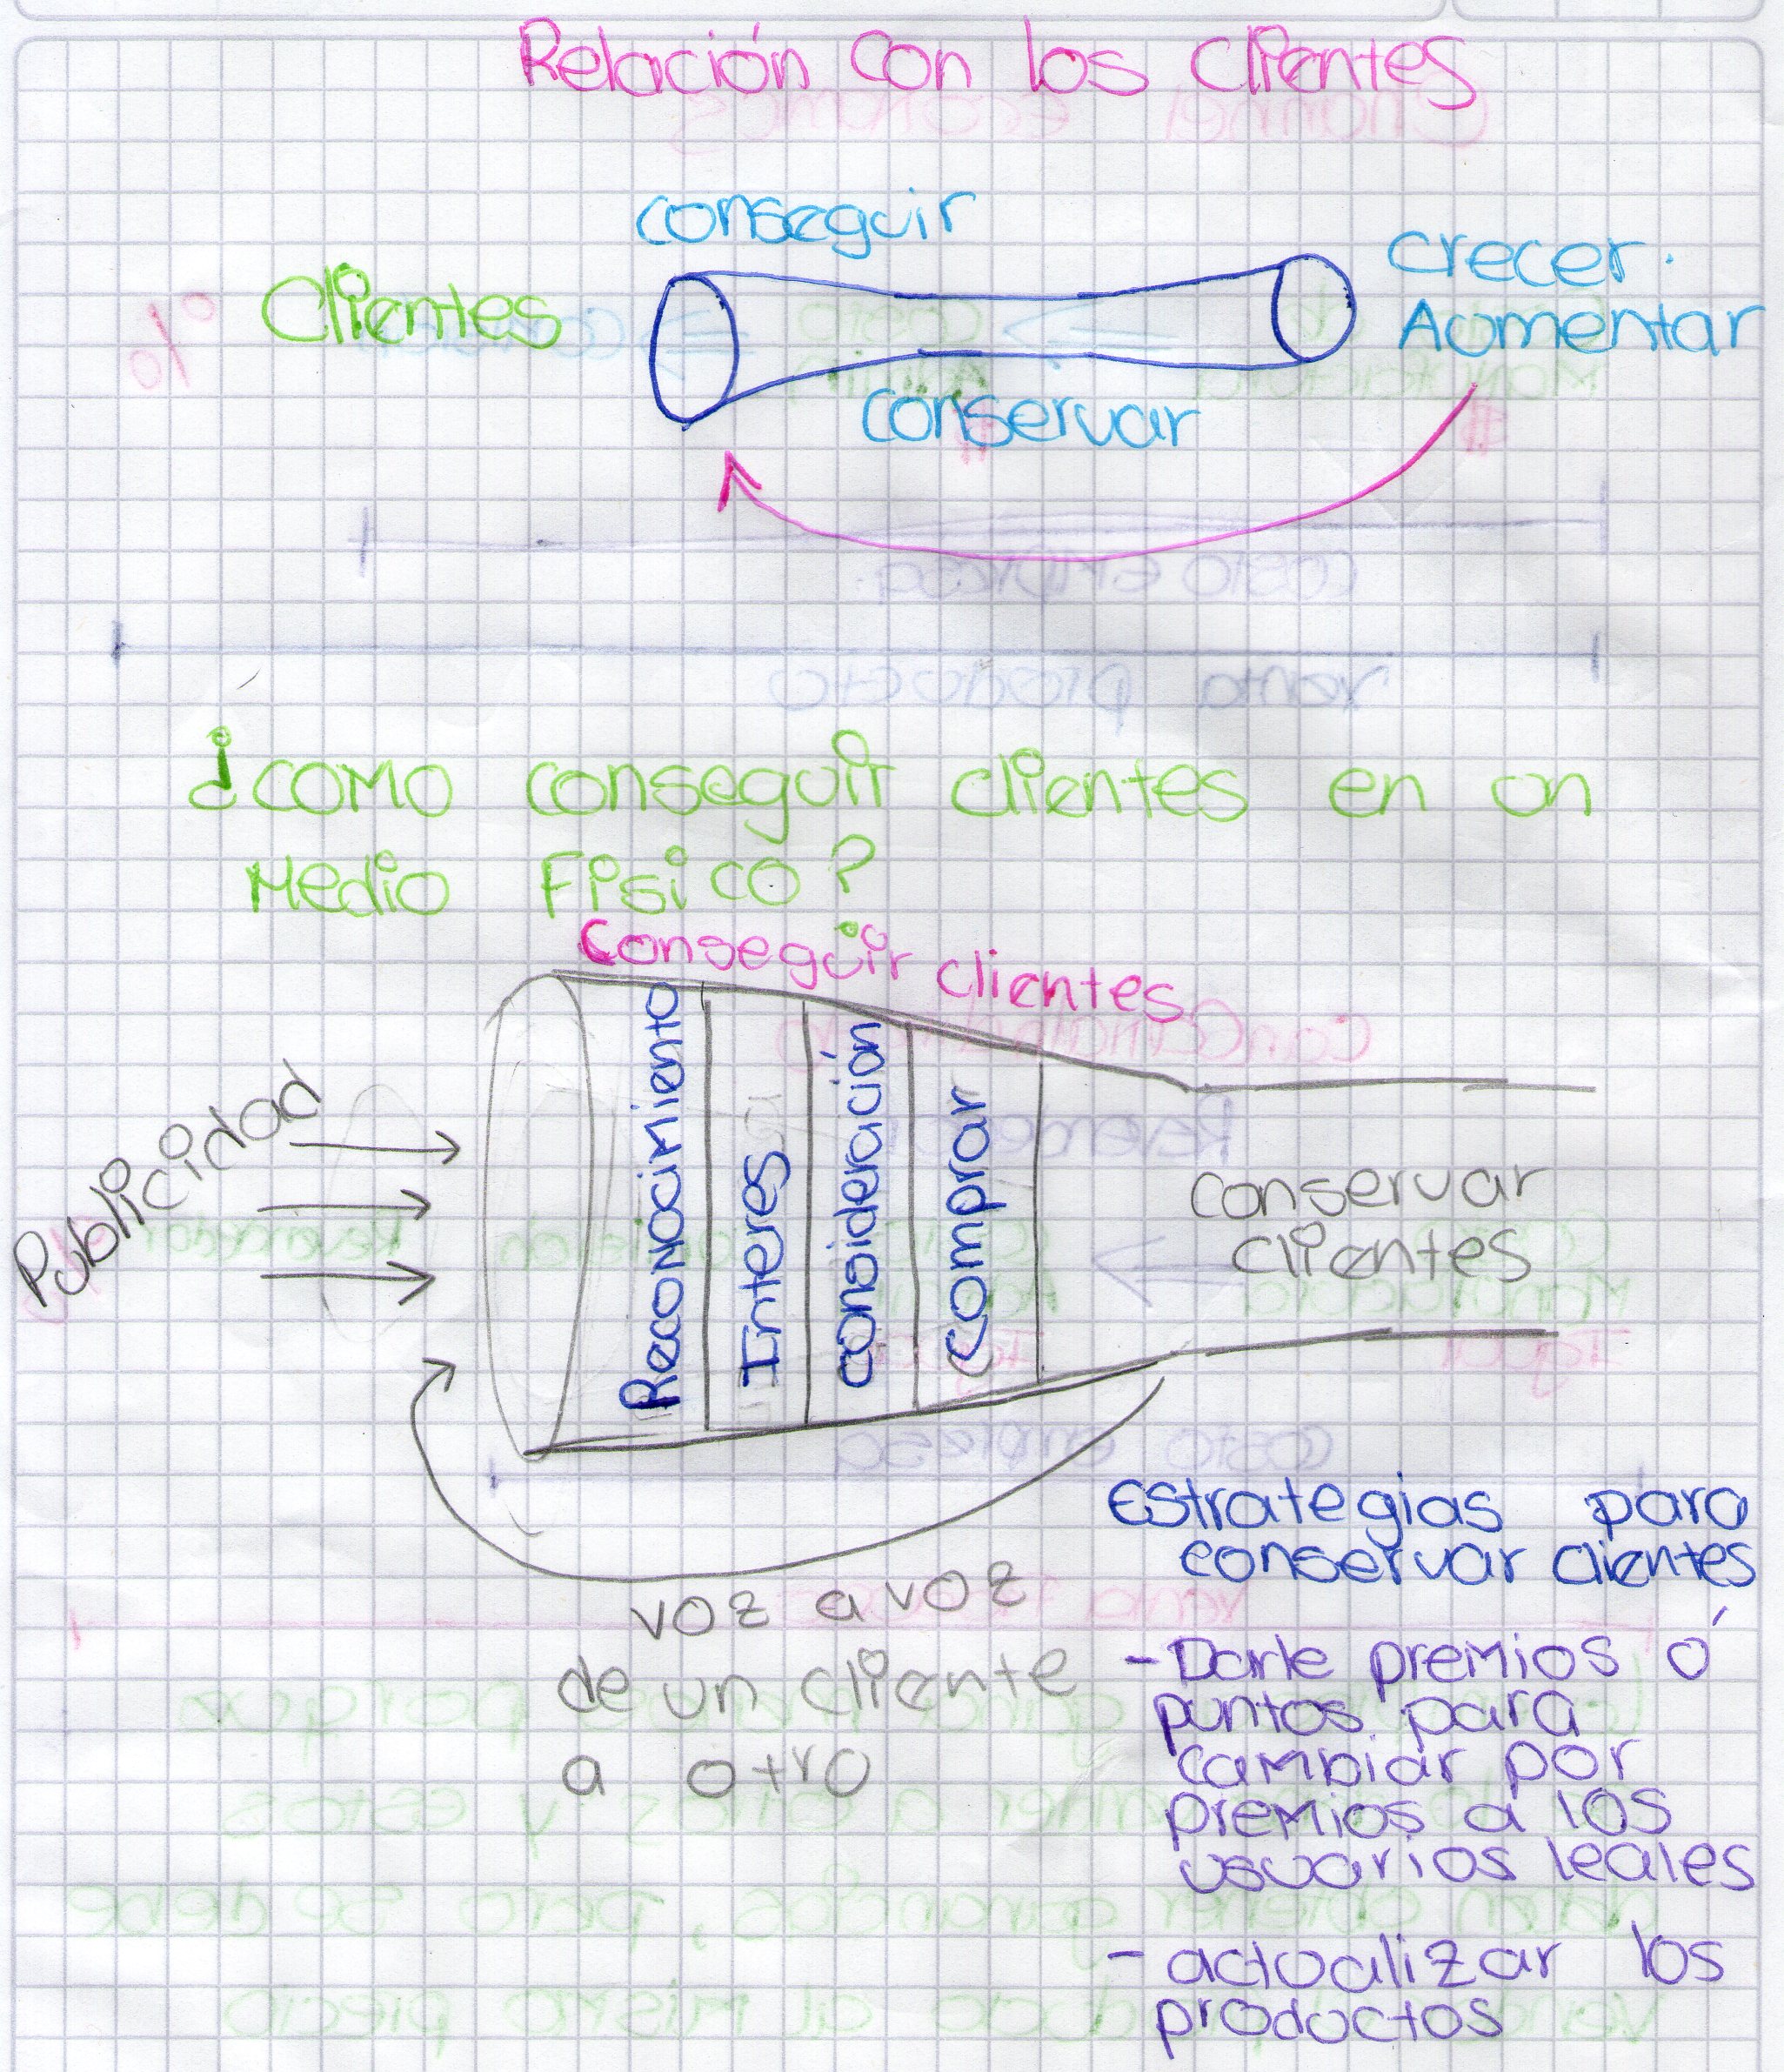 Relación con los clientes
conseguir
Clientes
crecer.
Aumentar
conservar
¿COMO conseguir clientes en un
Medio Fisico?
Conseguir clientes
Publicidad
Reconocimiento
Interes
consideración
comprar
conservar
clientes
voz a voz
de un cliente
a otro
Estrategias para
conservar clientes
- Darle premios ó
puntos para
cambiar por
premios a los
usuarios leales
- actualizar los
productos